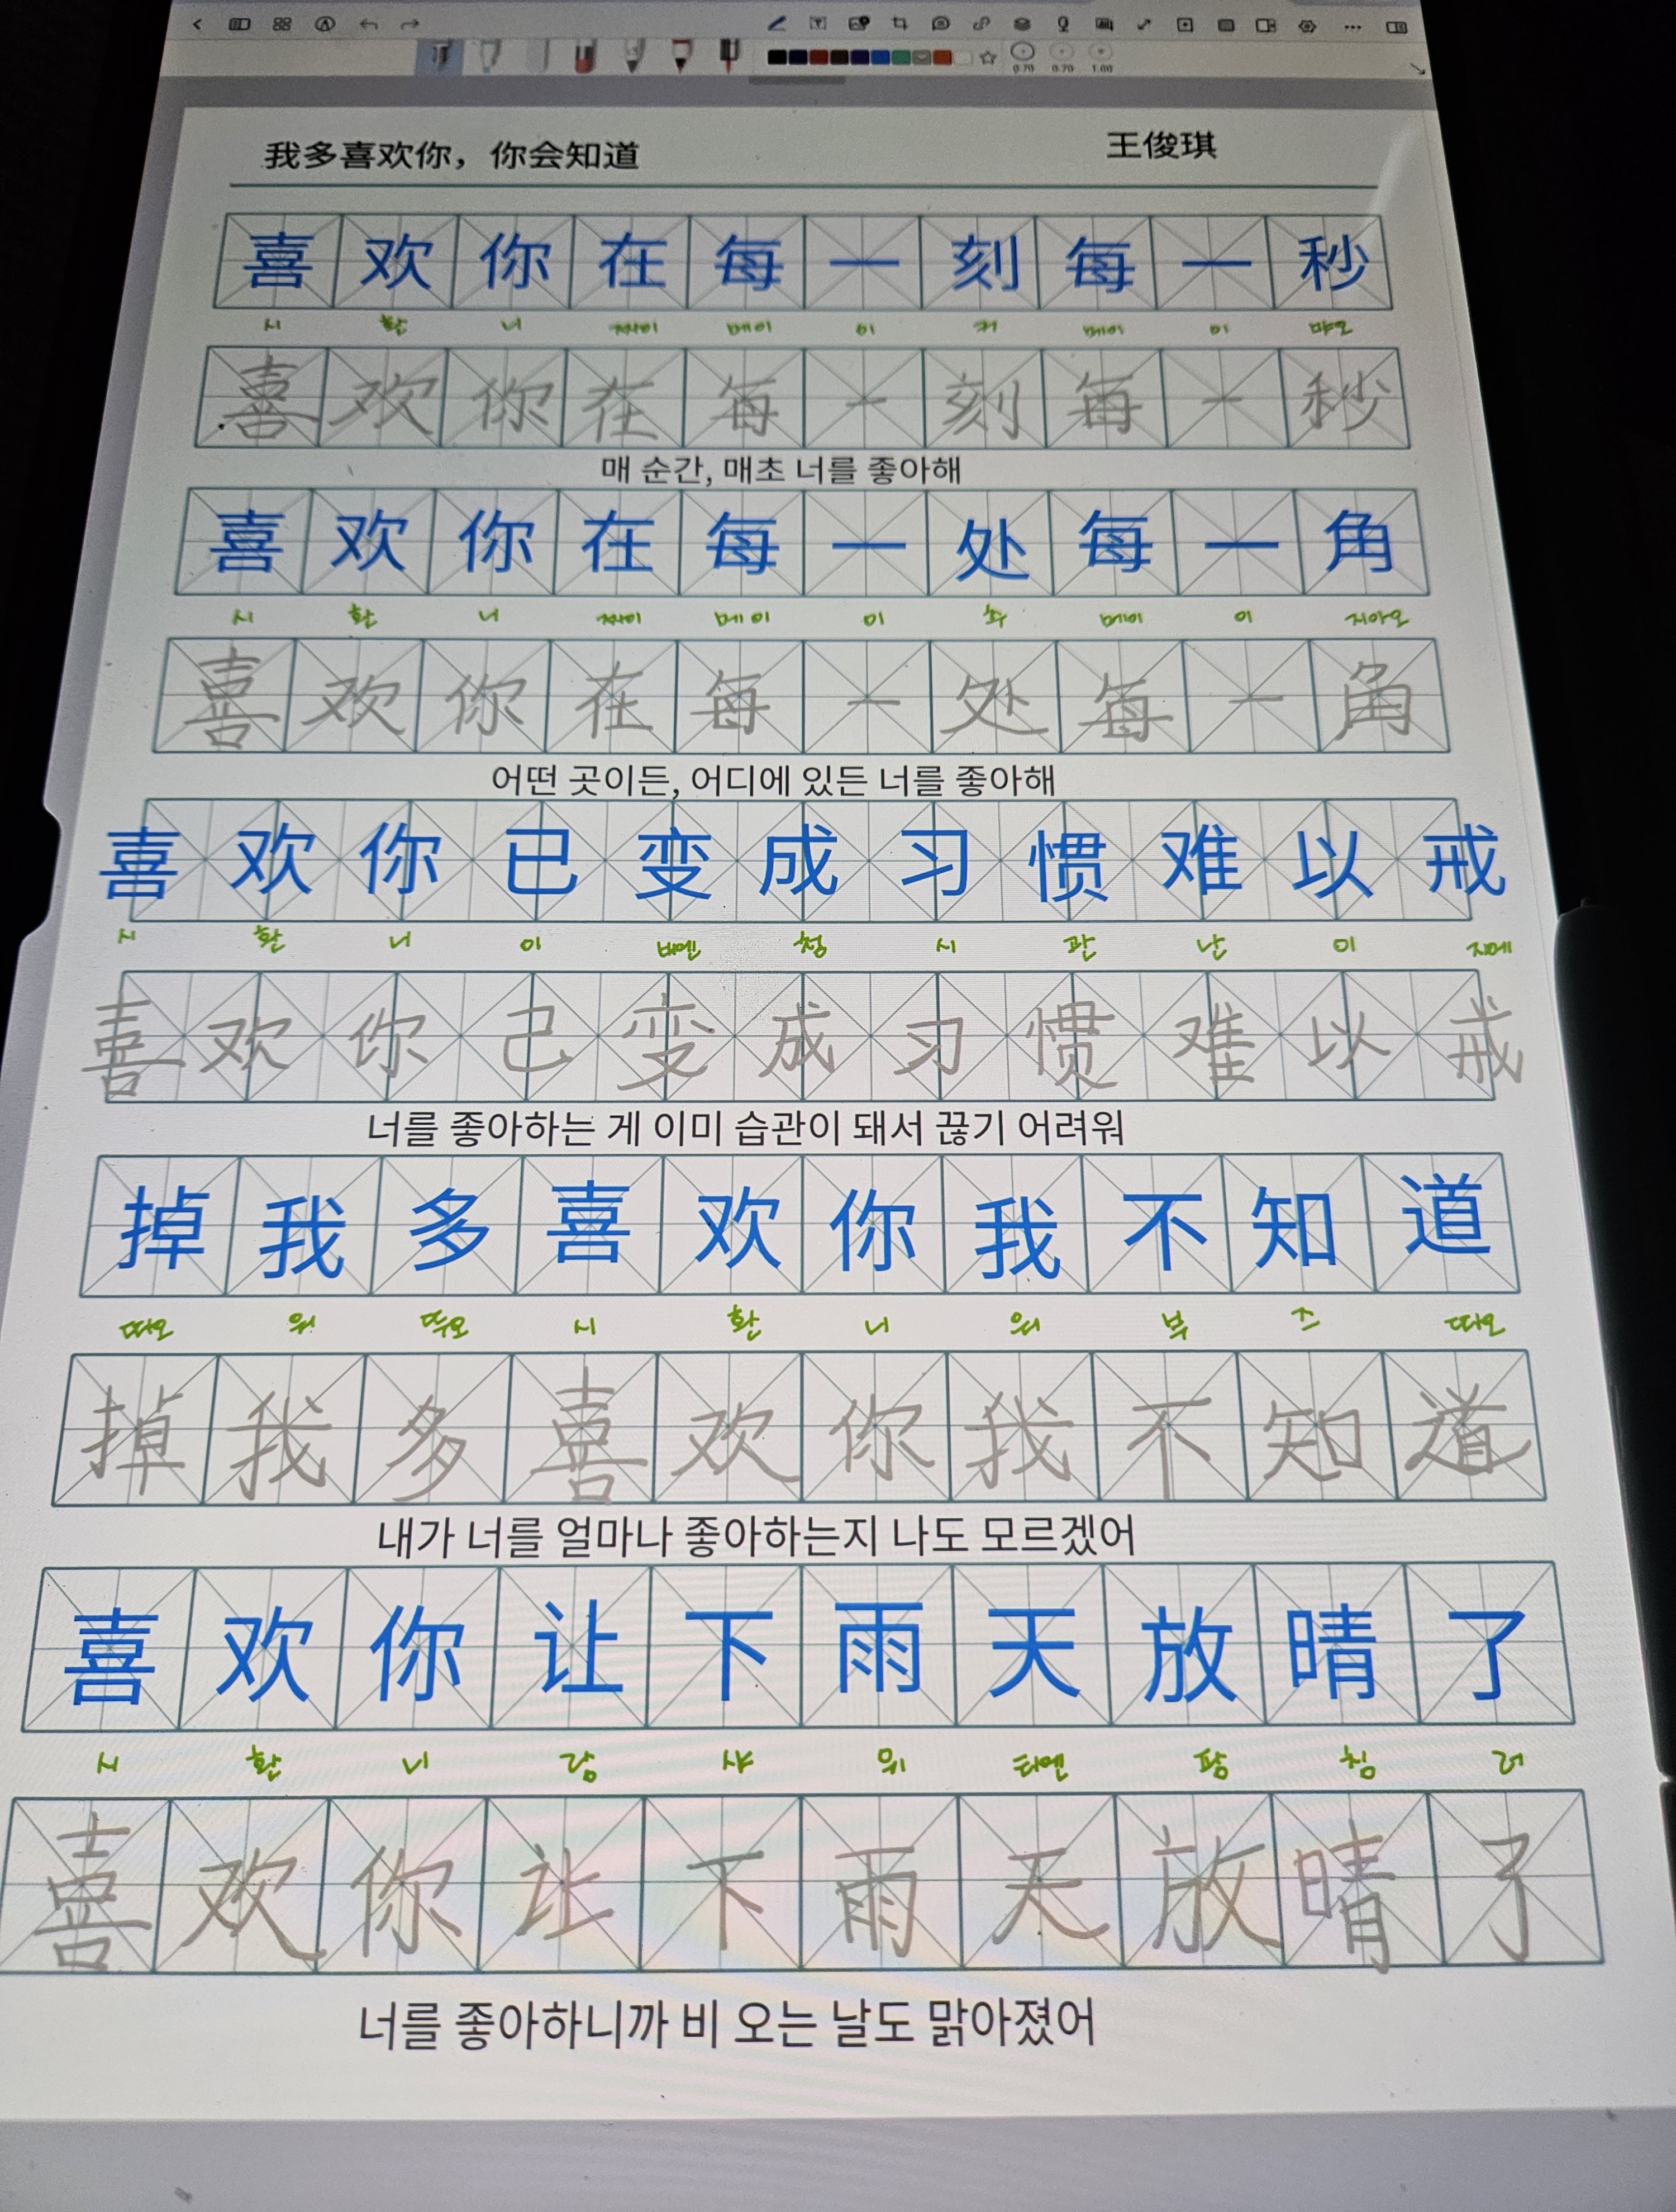 0.70 0.70 1.00
我多喜欢你，你会知道 王俊琪
喜欢你在每一刻每一秒
시 환 니 짜이 메이 이 커 메이 이 먀오
喜欢你在每一刻每一秒
매 순간, 매초 너를 좋아해
喜欢你在每一处每一角
시 환 니 짜이 메이 이 추 메이 이 지아오
喜欢你在每一处每一角
어떤 곳이든, 어디에 있든 너를 좋아해
喜欢你已变成习惯难以戒
시 환 니 이 삐엔 청 시 관 난 이 지에
喜欢你己变成习惯难以戒
너를 좋아하는 게 이미 습관이 돼서 끊기 어려워
掉我多喜欢你我不知道
띠아오 워 뚜오 시 환 니 워 부 즈 따오
掉我多喜欢你我不知道
내가 너를 얼마나 좋아하는지 나도 모르겠어
喜欢你让下雨天放晴了
시 환 니 랑 샤 위 티엔 팡 칭 러
喜欢你让下雨天放晴了
너를 좋아하니까 비 오는 날도 맑아졌어